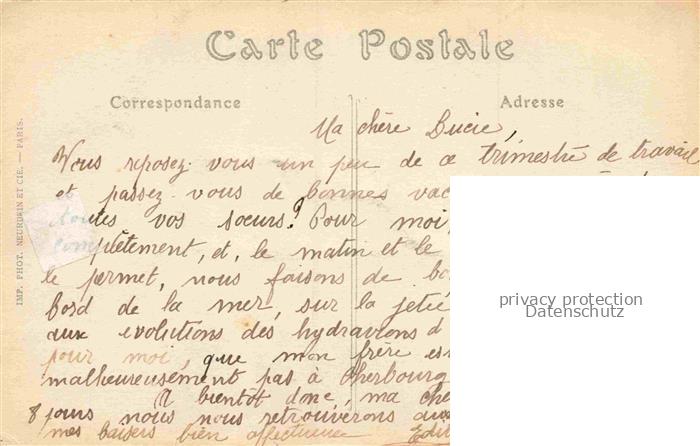 Carte Postale
Correspondance
Adresse
IMP. PHOT. NEURDEIN ET CIE. — PARIS.
Ma chère Lucie,
Vous reposez-vous un peu de ce trimestre de travail
et passez-vous de bonnes vac
toutes vos soeurs? Pour moi,
complètement, et, le matin et le
le permet, nous faisons de bo
bord de la mer, sur la jetée
aux evolutions des hydravions d
pour moi, que mon frère es
malheureusement pas à Cherbourg
A bientôt donc, ma che
8 jours nous nous retrouverons au
mes baisers bien affectueux
privacy protection
Datenschutz